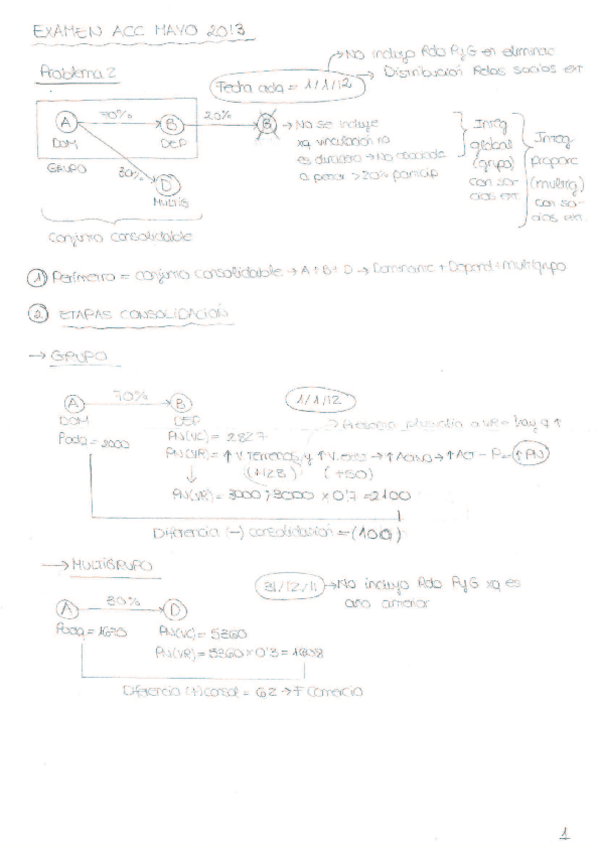 EXAMEN ACC MAYO 2013
Problema 2
Fecha adq = 1/1/12
→ No incluyo Rdo PyG en eliminac
→ Distribución Rdos socios ext
A 70% B 20%
DOM DEP
GRUPO 30% D
MULTIG
→ No se incluye
xq vinculación no
es duradera → No asociada
a pesar >20% particip
Integ
global
(grupo)
con so-
cios ext
Integ
proporc
(multig)
con so-
cios ext
Conjunto consolidable
1 Perímetro = conjunto consolidable → A+B+D → Dominante + Depend + multigrupo
2 ETAPAS CONSOLIDACIÓN
→ GRUPO
A 70% B 1/1/12
DOM DEP
Padq = 2000 PN(VC) = 2827
hay q ↑
PN(VR) = ↑ V. Terrenos y ↑ V. → ↑ Activo → ↑ Act - P = ↑ PN
(+123) (+50)
PN(VR) = 3000; 3000 x 0'7 = 2100
Diferencia (-) consolidación = (100)
→ MULTIGRUPO
A 30% D 31/12/11 → No incluyo Rdo PyG xq es
año anterior
Padq = 1670 PN(VC) = 5360
PN(VR) = 5360 x 0'3 = 1608
Diferencia (+) consol = 62 → F Comercio
1